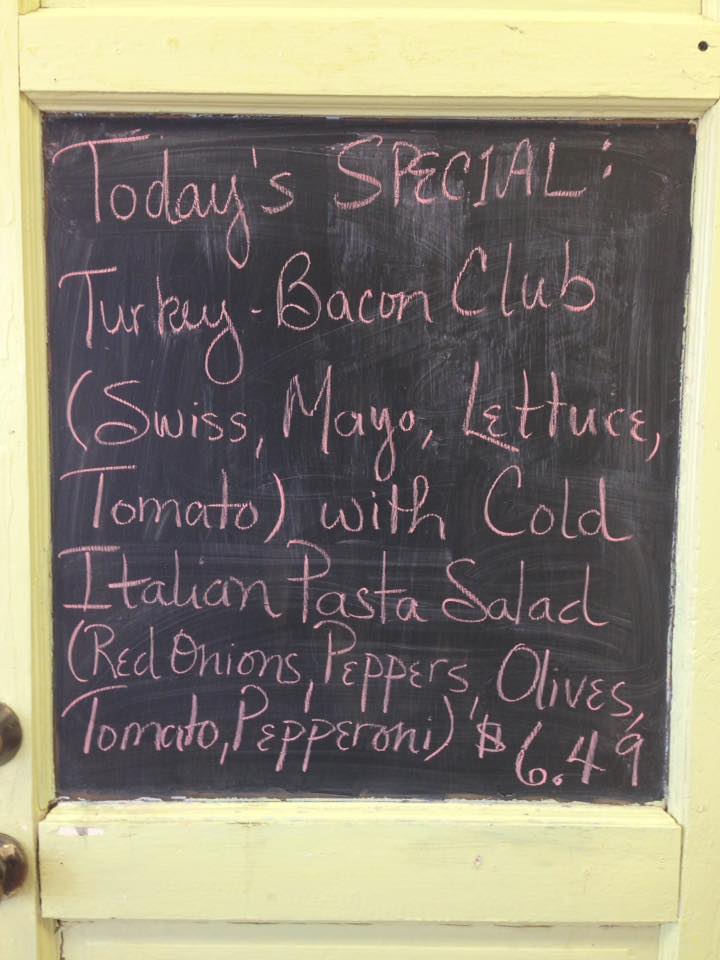 Today's SPECIAL:
Turkey-Bacon Club
(Swiss, Mayo, Lettuce,
Tomato) with Cold
Italian Pasta Salad
(Red Onions, Peppers, Olives,
Tomato, Pepperoni) $6.49